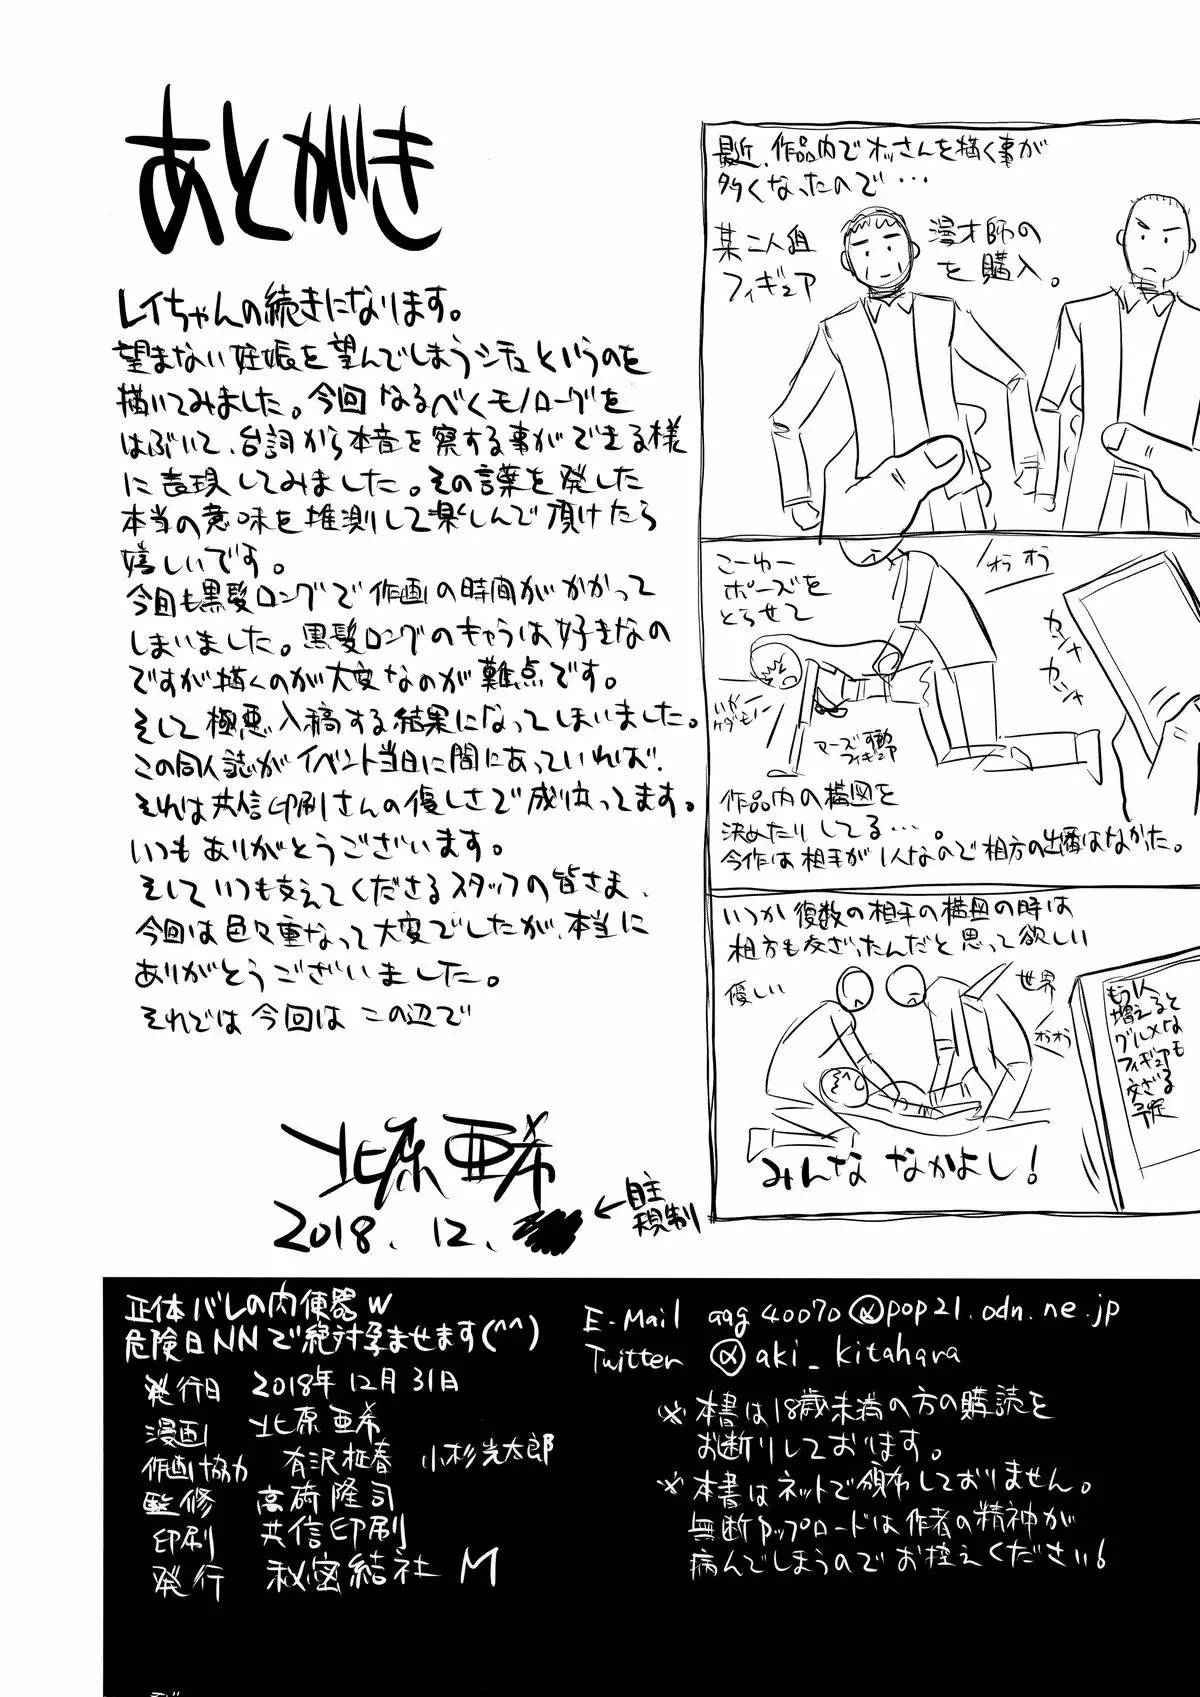 あとがき
レイちゃんの続きになります。
望まない妊娠を望んでしまうシチュというのを
描いてみました。今回なるべくモノローグを
はぶいて、台詞から本音を察する事ができる様
に表現してみました。その言葉を発した
本当の意味を推測して楽しんで頂けたら
嬉しいです。
今回も黒髪ロングで作画の時間がかかって
しまいました。黒髪ロングのキャラは好きなの
ですが描くのが大変なのが難点です。
そして極悪入稿する結果になってしまいました。
この同人誌がイベント当日に間にあっていれば、
それは共信印刷さんの優しさで成り立ってます。
いつもありがとうございます。
そしていつも支えてくださるスタッフの皆さま、
今回は色々重なって大変でしたが、本当に
ありがとうございました。
それでは今回はこの辺で
北原亜希
2018.12.
←自主
規制
最近、作品内でオッさんを描く事が
多くなったので…
某二人組 漫才師の
フィギュア を購入。
こーゆー
ポーズを
とらせて
オウオウ
カシャ
カシャ
いやー
ケダモノー
可動
フィギュア
作品内の構図を
決めたりしてる…。
今作は相手が1人なので相方の出番はなかった。
いつか複数の相手の構図の時は
相方も交ざったんだと思って欲しい
優しい
世界
オウオウ
もう1人
増えると
グルメな
フィギュアも
交ざる
予定
みんな なかよし!
正体バレの肉便器w
危険日NNで絶対孕ませます(^^)
発行日 2018年12月31日
漫画 北原亜希
作画協力 有沢柾春 小杉光太郎
監修 高崎隆司
印刷 共信印刷
発行 秘密結社M
E-Mail aag40070@pop21.odn.ne.jp
Twitter @aki_kitahara
※本書は18歳未満の方の購読を
お断りしております。
※本書はネットで頒布しておりません。
無断アップロードは作者の精神が
病んでしまうのでお控えください!